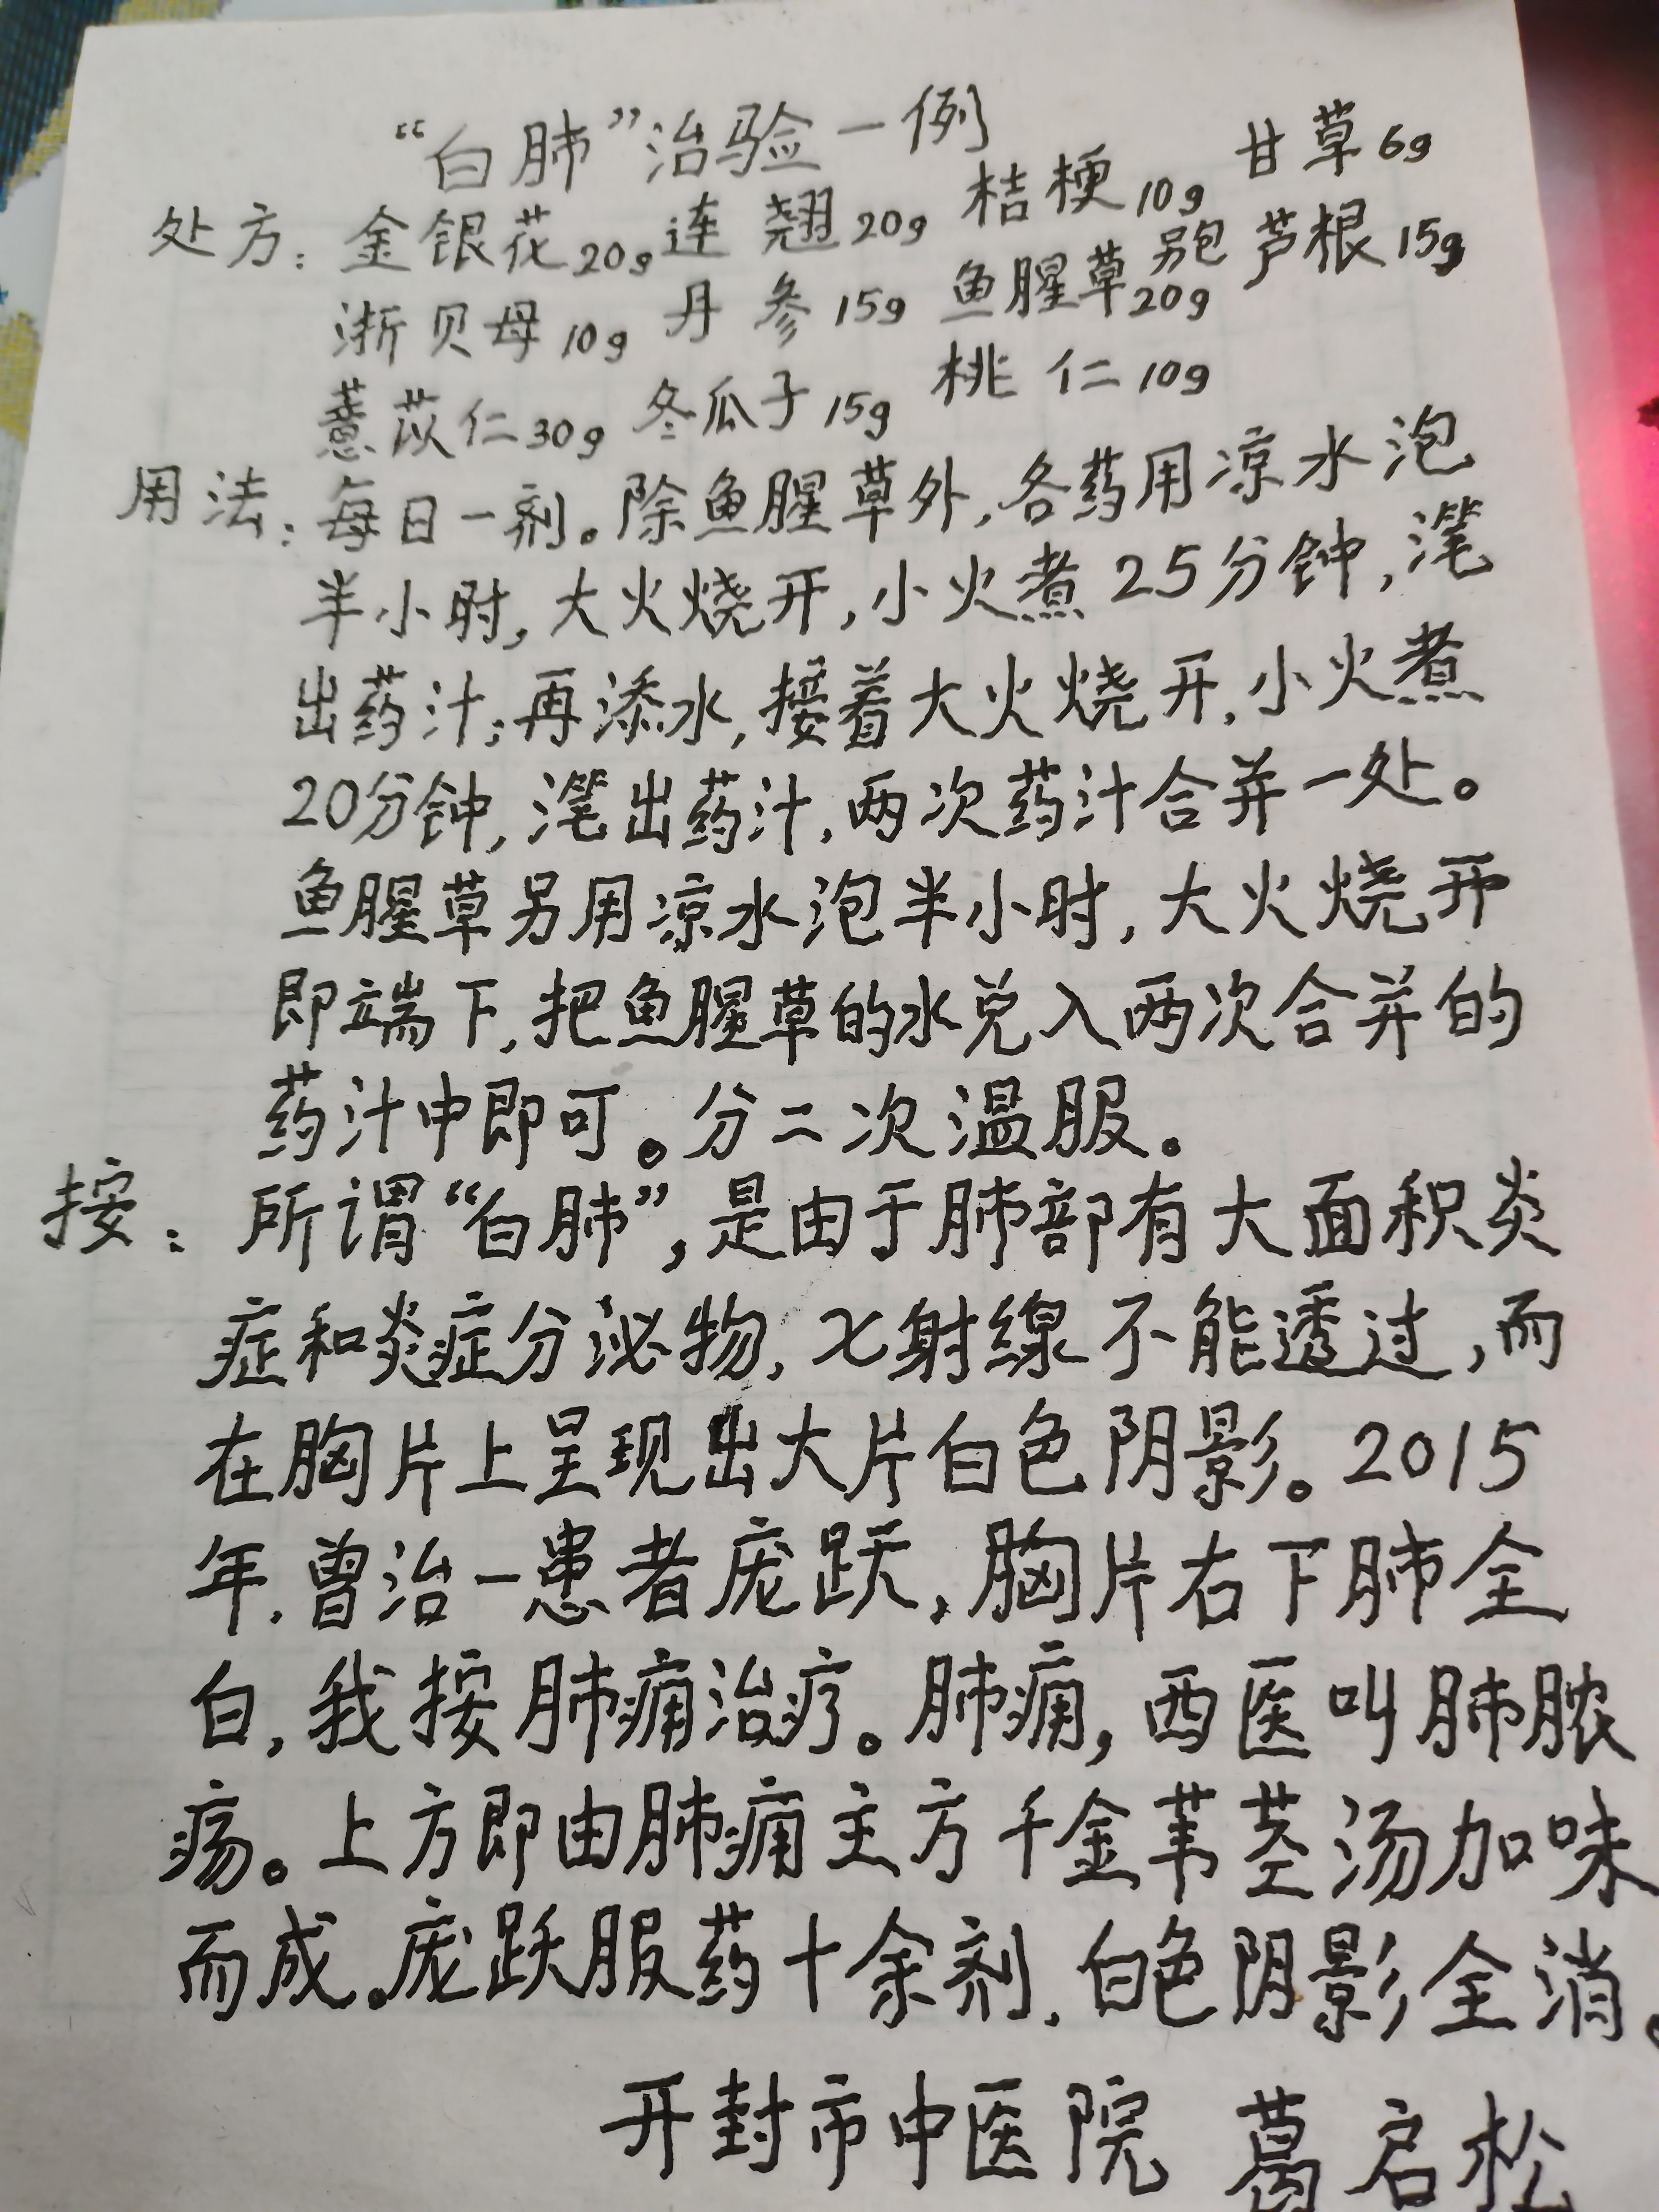 “白肺”治验一例
处方：金银花20g 连翘20g 桔梗10g 甘草6g
浙贝母10g 丹参15g 鱼腥草另包20g 芦根15g
薏苡仁30g 冬瓜子15g 桃仁10g
用法：每日一剂。除鱼腥草外，各药用凉水泡
半小时，大火烧开，小火煮25分钟，滗
出药汁；再添水，接着大火烧开，小火煮
20分钟，滗出药汁，两次药汁合并一处。
鱼腥草另用凉水泡半小时，大火烧开
即端下，把鱼腥草的水兑入两次合并的
药汁中即可。分二次温服。
按：所谓“白肺”，是由于肺部有大面积炎
症和炎症分泌物，X射线不能透过，而
在胸片上呈现出大片白色阴影。2015
年，曾治一患者庞跃，胸片右下肺全
白，我按肺痈治疗。肺痈，西医叫肺脓
疡。上方即由肺痈主方千金苇茎汤加味
而成。庞跃服药十余剂，白色阴影全消。
开封市中医院 葛启松